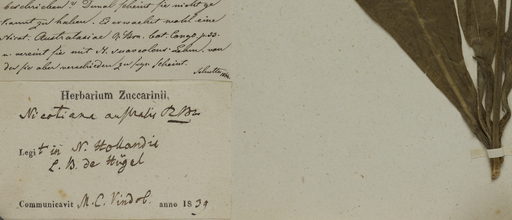 beschrieben?) Donal scheint sie nicht ge
kannt zu haben. Er erwachet wohl eine
Australasiae R. Br. bot. Congo p. 53.
u. vereint sie mit N. suaveolens Lehm., von
der sie aber verschieden zu seyn scheint.
Herbarium Zuccarinii.
Nicotiana australis R Br
Legit in N. Hollandie
C. B. de Hügel
Communicavit M. C. Vindob. anno 1839